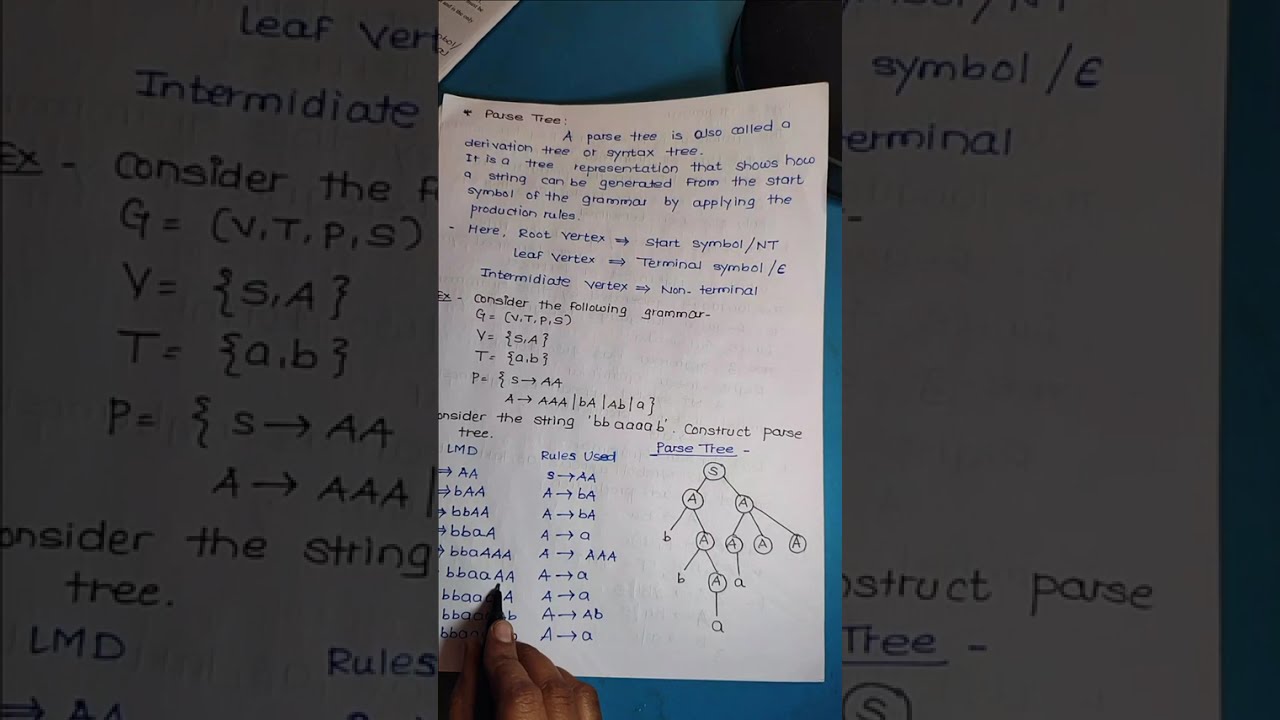 * Parse Tree:
A parse tree is also called a
derivation tree or syntax tree.
It is a tree representation that shows how
a string can be generated from the start
symbol of the grammar by applying the
production rules.
- Here, Root vertex ⇒ Start symbol/NT
leaf vertex ⇒ Terminal symbol/ε
Intermidiate vertex ⇒ Non-terminal
Ex - Consider the following grammar-
G = (V,T,P,S)
V= {S,A}
T= {a,b}
P= { S→ AA
A→ AAA|bA|Ab|a}
onsider the string 'bbaaaab'. Construct parse
tree.
LMD Rules Used Parse Tree -
⇒ AA S→AA
⇒ bAA A→bA
⇒ bbAA A→bA
⇒ bbaA A→a
⇒ bbaAAA A→ AAA
bbaaAA A→a
A→a
A→Ab
A→a
S
A A
b A A A A
b A a
a
leaf vert
Intermidiate
Ex - Consider the f
G = (V,T,P,S)
V= {S,A}
T= {a,b}
P= { S→ AA
A→ AAA|
onsider the string
tree.
LMD Rules
⇒ AA
symbol/ε
terminal
struct parse
Tree -
S